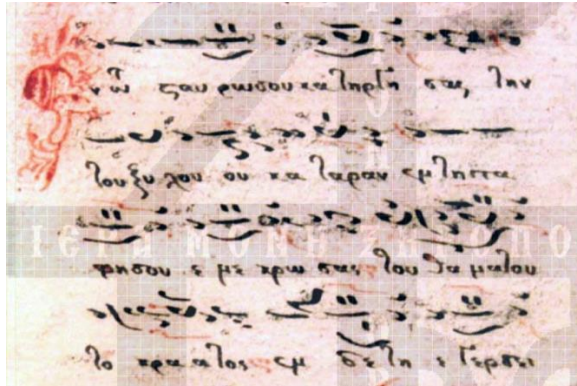 ν τῶ σταυ ρω σου κα τηργη σας, την
του ξυ λου ου κα ταραν εν τη τα
ΙΕΡΑ ΜΟΝΗ
φη σου ε νε κρω σας του θα να του
το κρα α τος εν δε τη ε γερσει